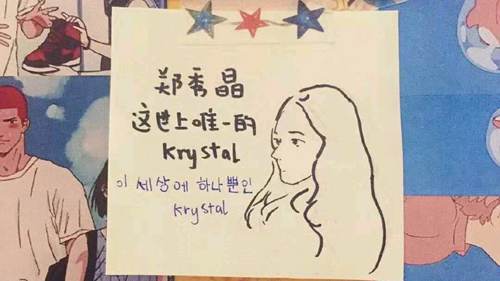 郑秀晶
这世上唯一的
krystal
이 세상에 하나뿐인
krystal